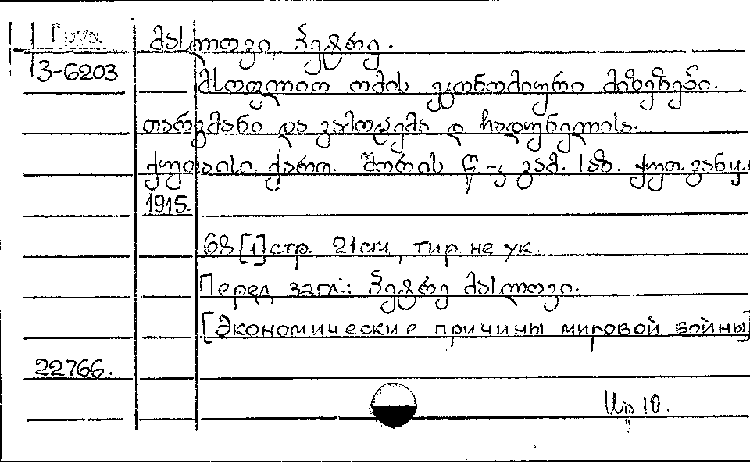 Груз.
3-6203
მასლოვი, პეტრე.
მსოფლიო ომის ეკონომიური მიზეზები.
თარგმანი და გამოცემა დ. ჩადუნელის.
ქუთაისი, ქართ. შორის წ-კ გამ. საზ. ქუთ. განყ.
1915.
68 [1] стр. 21 см, тир. не ук.
Перед загл.: პეტრე მასლოვი.
[Экономические причины мировой войны]
22766.